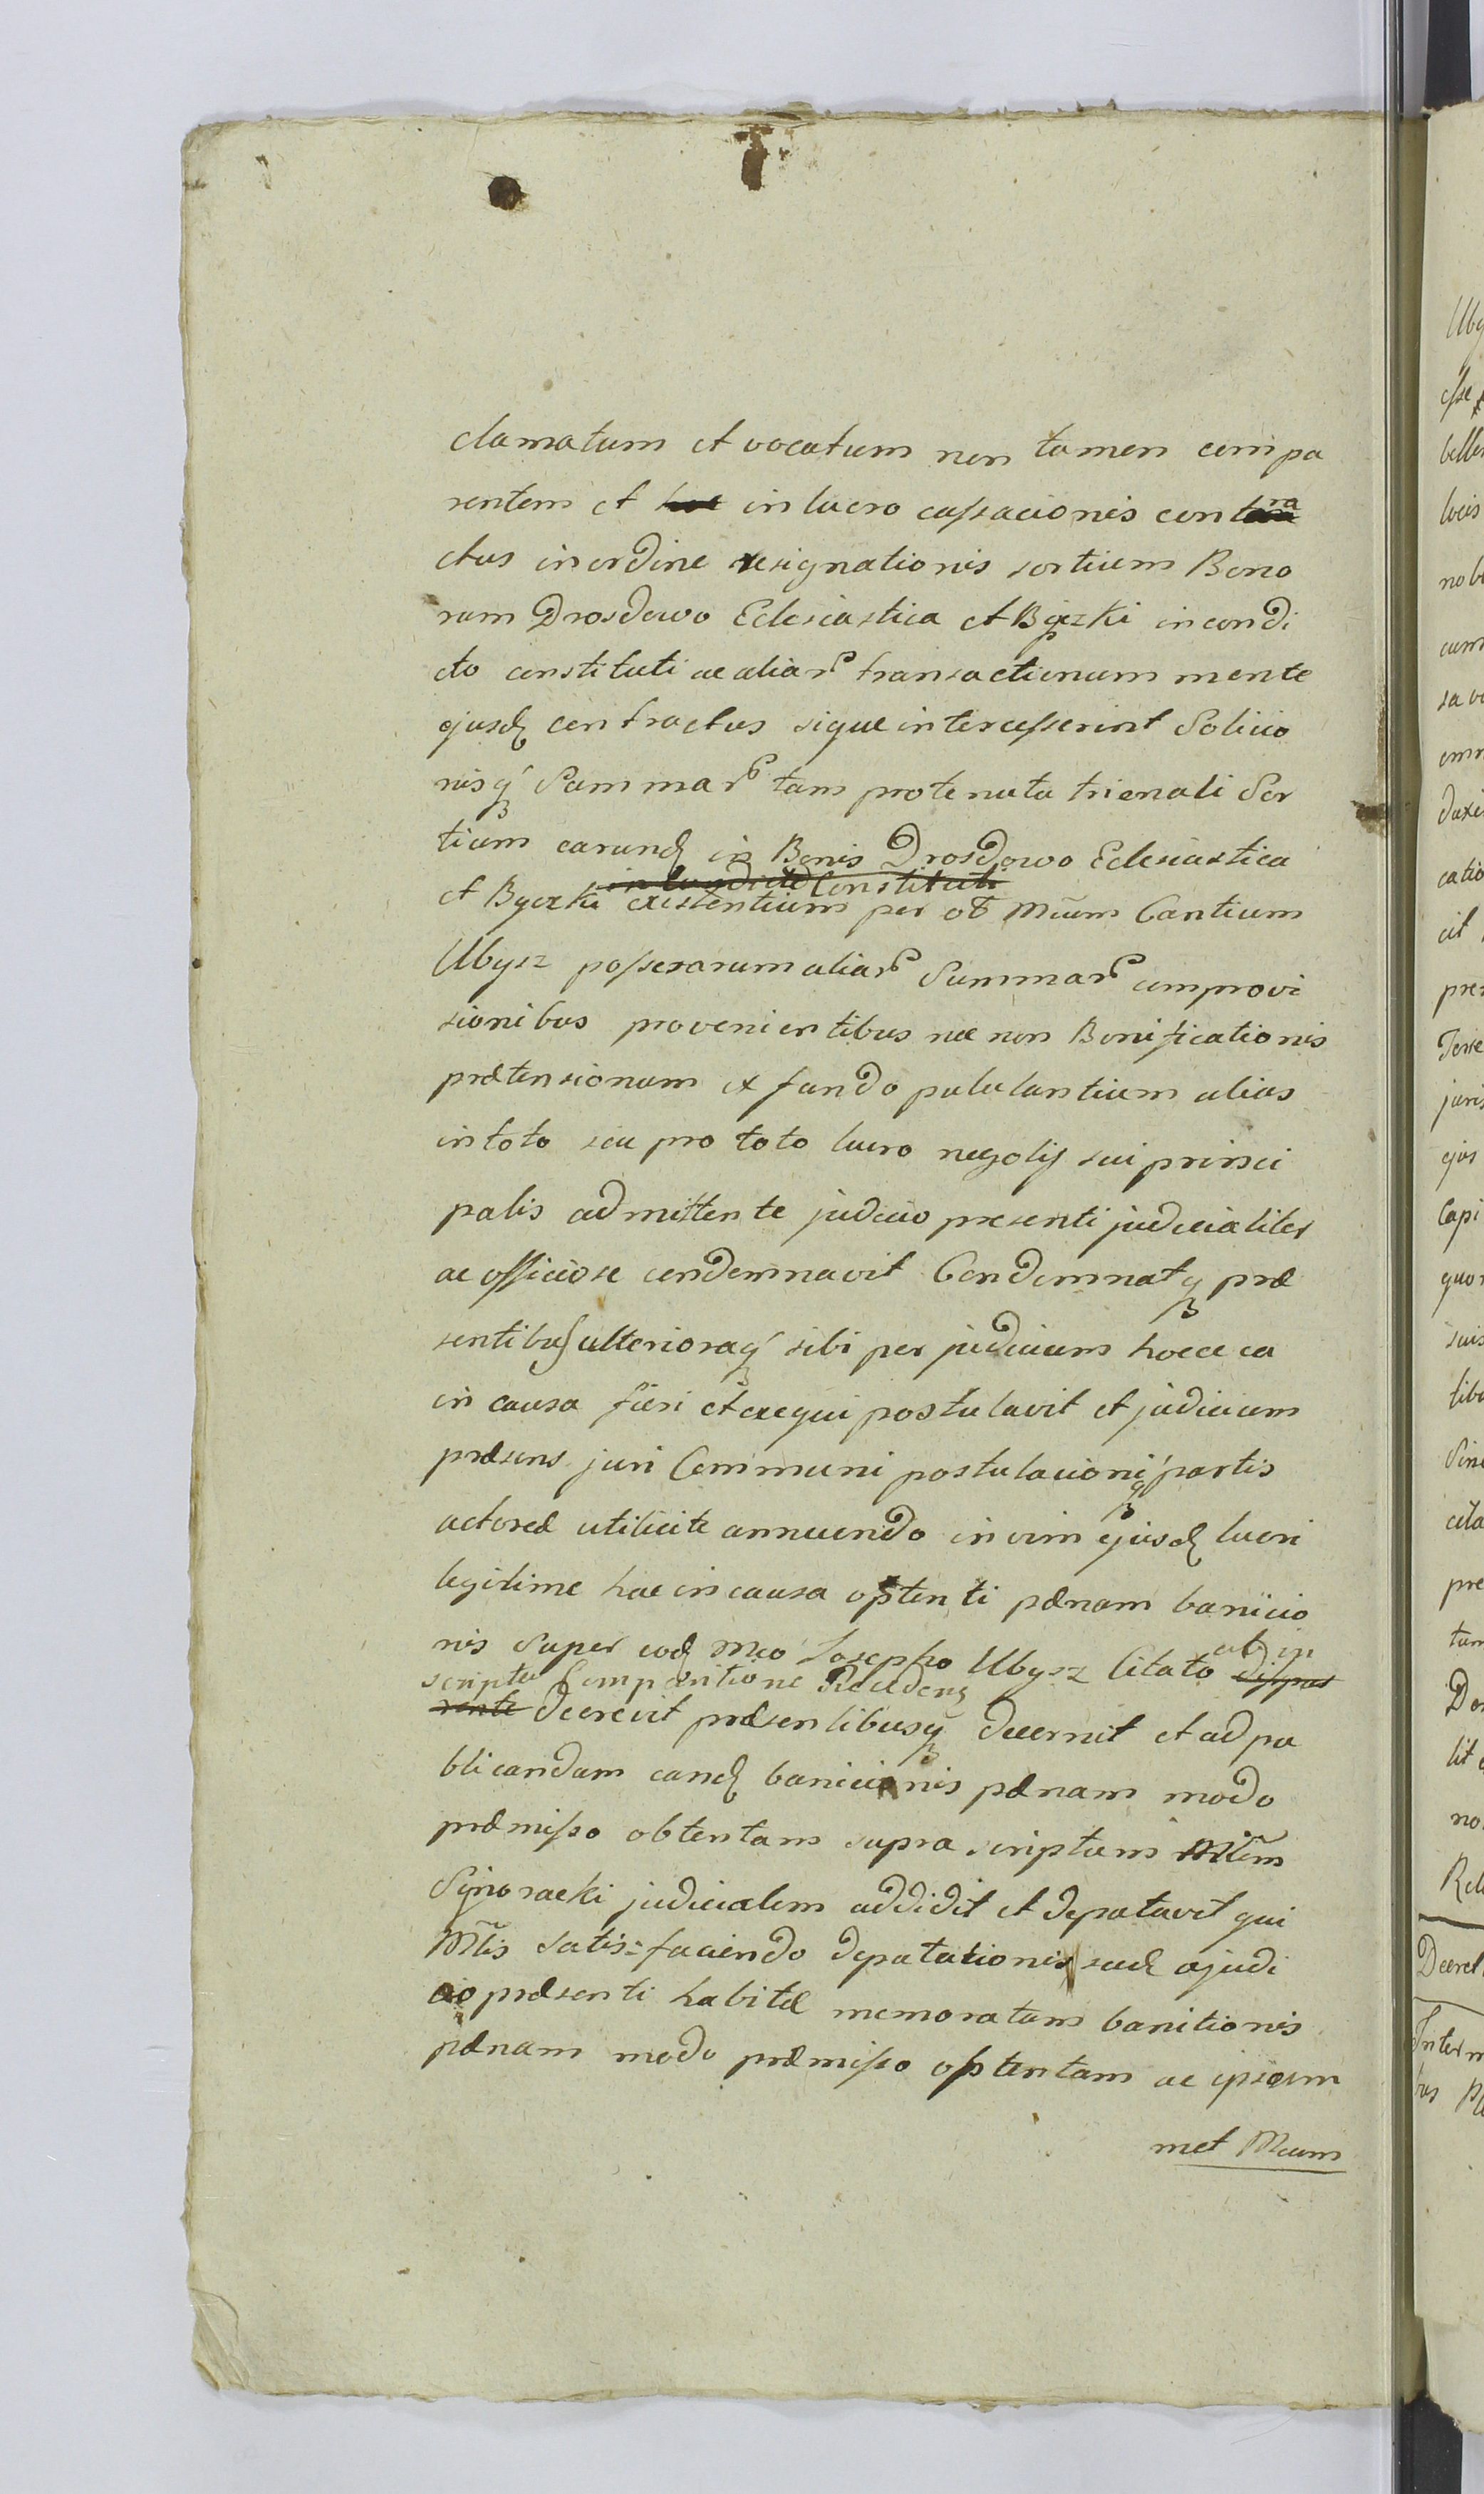 clamatum et vocatum non tamen compa
rentem et hoc in lucro cassacionis contra
ctus in ordine resignationis sortium Bono
rum Drosdowo Eclesiastica et Byczki in condi
cto constituti ac aliar transactionum mente
ejusd contractus sique intercesserint Solucio
nisq Summar tam pro tenuta trienali Sor
tium earund in Bonis Drosdowo Eclesiastica
in condicto Constituti
et Byczki existentium per ol Mcum Cantium
Ubysz possessarum aliar Summar comprovi
sionibus provenientibus nec non Bonificationis
prætensionum ex fundo pululantium alias
in toto seu pro toto lucro negotij sui princi
palis admittente judicio presenti judicialiter
ac officiose condemnavit Condemnatq præ
sentibus ulterioraq sibi per judicium hocce ea
in causa fieri et exequi postulavit et judicium
præsens juri Communi postulacioniq partis
actoreæ utilicite annuendo in vim ejusd lucri
legitime hac in causa optenti pænam banicio
nis super eod Mco Josepho Ubysz Citato ab in
scripta Comparitione Recedens dispas
rente decrevit præsentibusq decernit et ad pu
blicandam eand banicionis pænam modo
præmisso obtentam supra scriptum Mlem
Synoracki judicialem addidit et deputavit qui
Mlis satis=faciendo deputationis suæ a judi
cio præsenti habitæ memoratam banitionis
pænam modo præmisso optentam ac ipsum
met Mcum